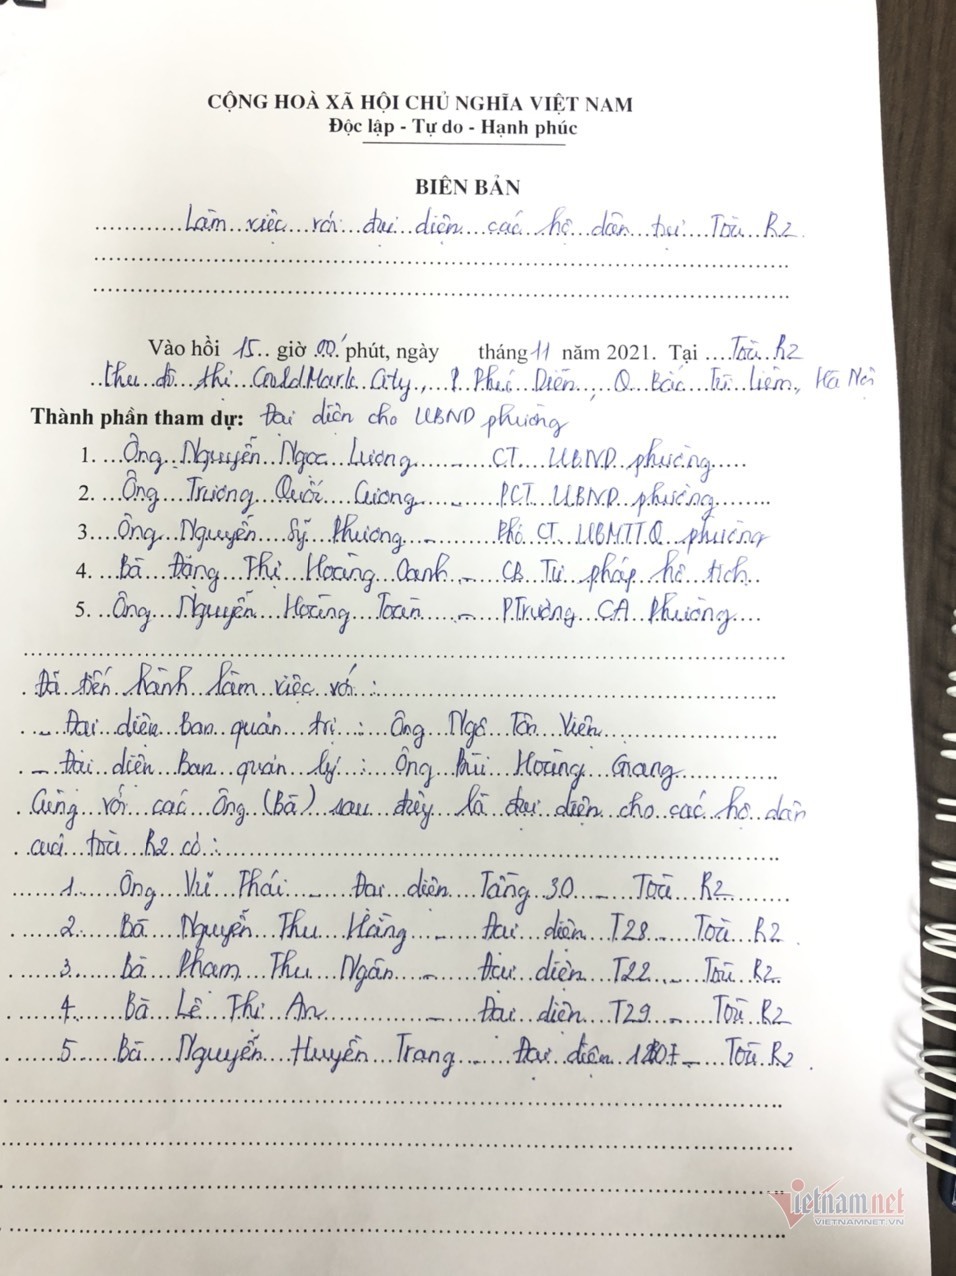 CỘNG HOÀ XÃ HỘI CHỦ NGHĨA VIỆT NAM
Độc lập - Tự do - Hạnh phúc
BIÊN BẢN
Làm việc với đại diện các hộ dân tại Toà R2
Vào hồi 15 giờ 00 phút, ngày tháng 11 năm 2021. Tại Toà R2
khu đô thị GoldMark City, P. Phúc Diễn, Q Bắc Từ Liêm, Hà Nội
Thành phần tham dự: Đại diện cho UBND phường
1. Ông Nguyễn Ngọc Lương - CT UBND phường
2. Ông Trương Quốc Cường - PCT UBND phường
3. Ông Nguyễn Sỹ Phương - Phó CT UBMTTQ phường
4. Bà Đặng Thị Hoàng Oanh - CB Tư pháp hộ tịch
5. Ông Nguyễn Hoàng Toàn - P.Trưởng CA Phường
Đã tiến hành làm việc với:
- Đại diện Ban quản trị: Ông Ngô Tôn Viên
- Đại diện Ban quản lý: Ông Bùi Hoàng Giang
Cùng với các Ông (Bà) sau đây là đại diện cho các hộ dân
của toà R2 có:
1. Ông Vũ Thái - Đại diện Tầng 30 - Toà R2
2. Bà Nguyễn Thu Hằng - Đại diện T28 - Toà R2
3. Bà Phạm Thu Ngân - Đại diện T22 - Toà R2
4. Bà Lê Thị An - Đại diện T29 - Toà R2
5. Bà Nguyễn Huyền Trang - Đại diện - Toà R2
Vietnamnet
VIETNAMNET.VN